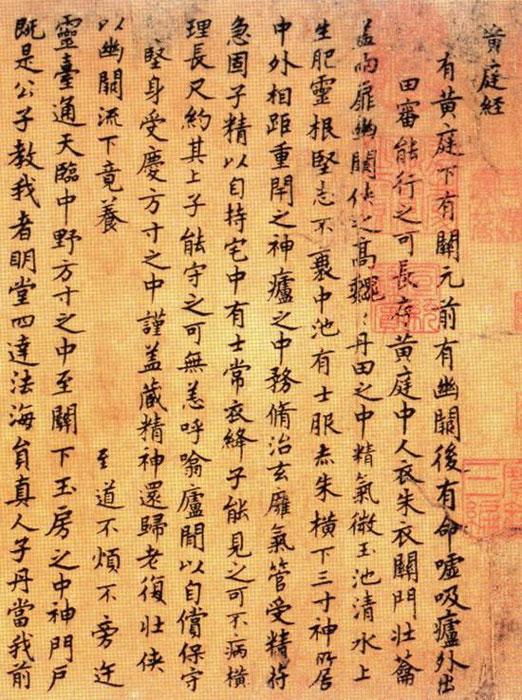 黄庭経
有黄庭下有關元前有幽闕後有命噓吸廬外出
田審能行之可長存黄庭中人衣朱衣關門壯蘥
盖兩扉幽闕俠之高巍巍丹田之中精氣微玉池清水上
生肥靈根堅志不衰中池有士服赤朱橫下三寸神所居
中外相距重閇之神廬之中務脩治玄癰氣管受精符
急固子精以自持宅中有士常衣絳子能見之可不病橫
理長尺約其上子能守之可無恙呼噏廬間以自償保守
堅身受慶方寸之中謹盖藏精神還歸老復壯俠
以幽闕流下竟養 至道不煩不旁迕
靈臺通天臨中野方寸之中至關下玉房之中神門戶
既是公子教我者明堂四達法海員真人子丹當我前